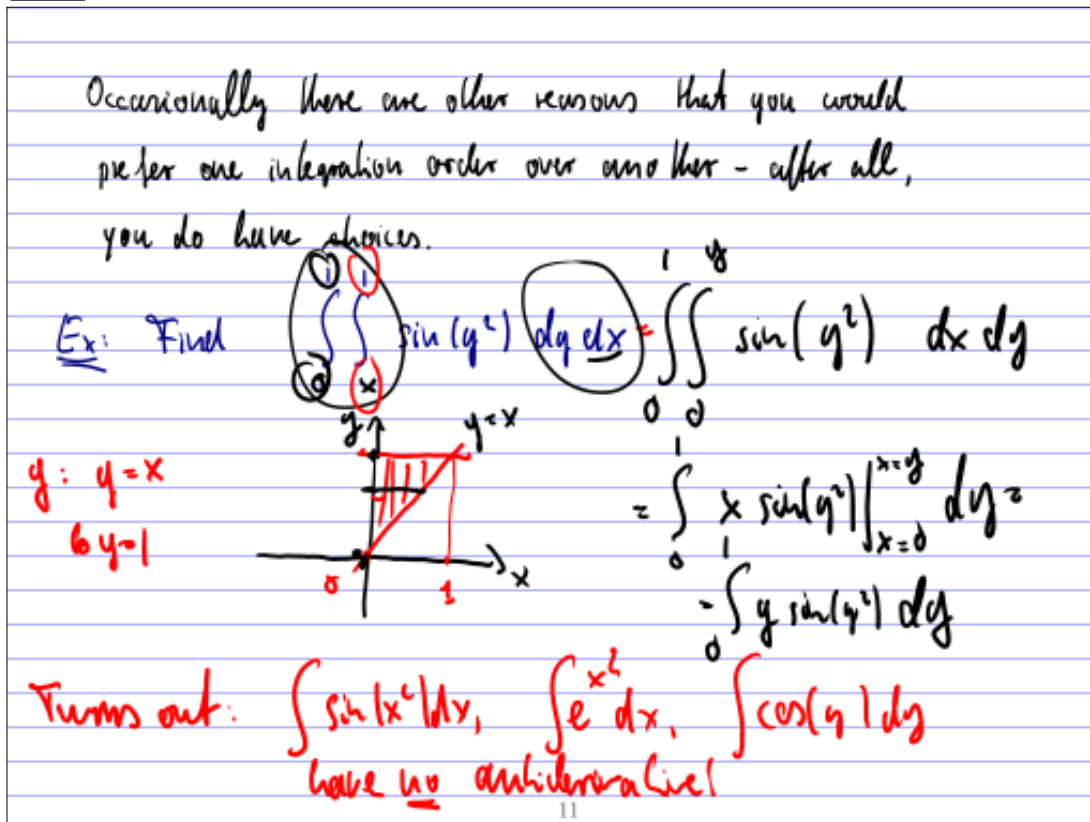 Occasionally there are other reasons that you would
prefer one integration order over another - after all,
you do have choices.
Ex: Find ∫₀¹ ∫ₓ¹ sin(y²) dy dx = ∫₀¹ ∫₀ʸ sin(y²) dx dy
y
y=x
y: y=x
to y=1
0
1
x
= ∫₀¹ x sin(y²) |ₓ₌₀ˣ⁼ʸ dy =
= ∫₀¹ y sin(y²) dy
Turns out: ∫ sin(x²)dx, ∫ e^x² dx, ∫ cos(y) dy
have no antiderivative!
11